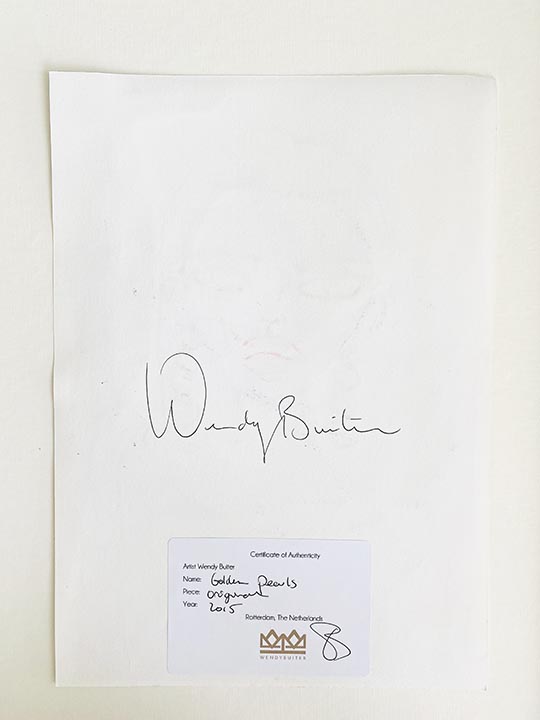 Wendy Buiter
Certificate of Authenticity
Artist Wendy Buiter
Name: Golden Pearls
Piece: original
Year: 2015
Rotterdam, The Netherlands
WENDYBUITER